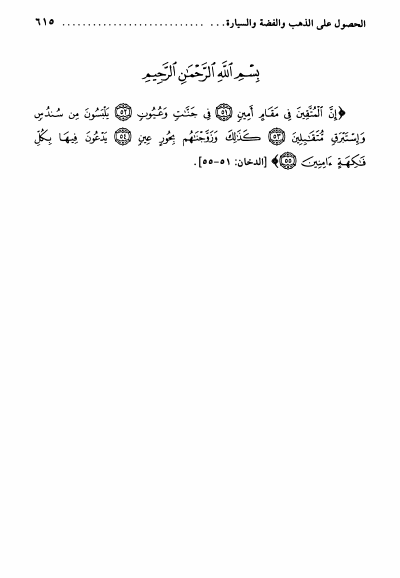 الحصول على الذهب والفضة والسيارة... ........................... ٦١٥
بِسْمِ ٱللَّهِ ٱلرَّحْمَٰنِ ٱلرَّحِيمِ
﴿إِنَّ ٱلْمُتَّقِينَ فِى مَقَامٍ أَمِينٍ ۝٥١ فِى جَنَّٰتٍ وَعُيُونٍ ۝٥٢ يَلْبَسُونَ مِن سُندُسٍ
وَإِسْتَبْرَقٍ مُّتَقَٰبِلِينَ ۝٥٣ كَذَٰلِكَ وَزَوَّجْنَٰهُم بِحُورٍ عِينٍ ۝٥٤ يَدْعُونَ فِيهَا بِكُلِّ
فَٰكِهَةٍ ءَامِنِينَ ۝٥٥﴾ [الدخان: ٥١-٥٥].